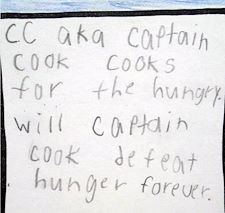 CC aka captain
cook cooks
for the hungry.
will captain
cook defeat
hunger forever.